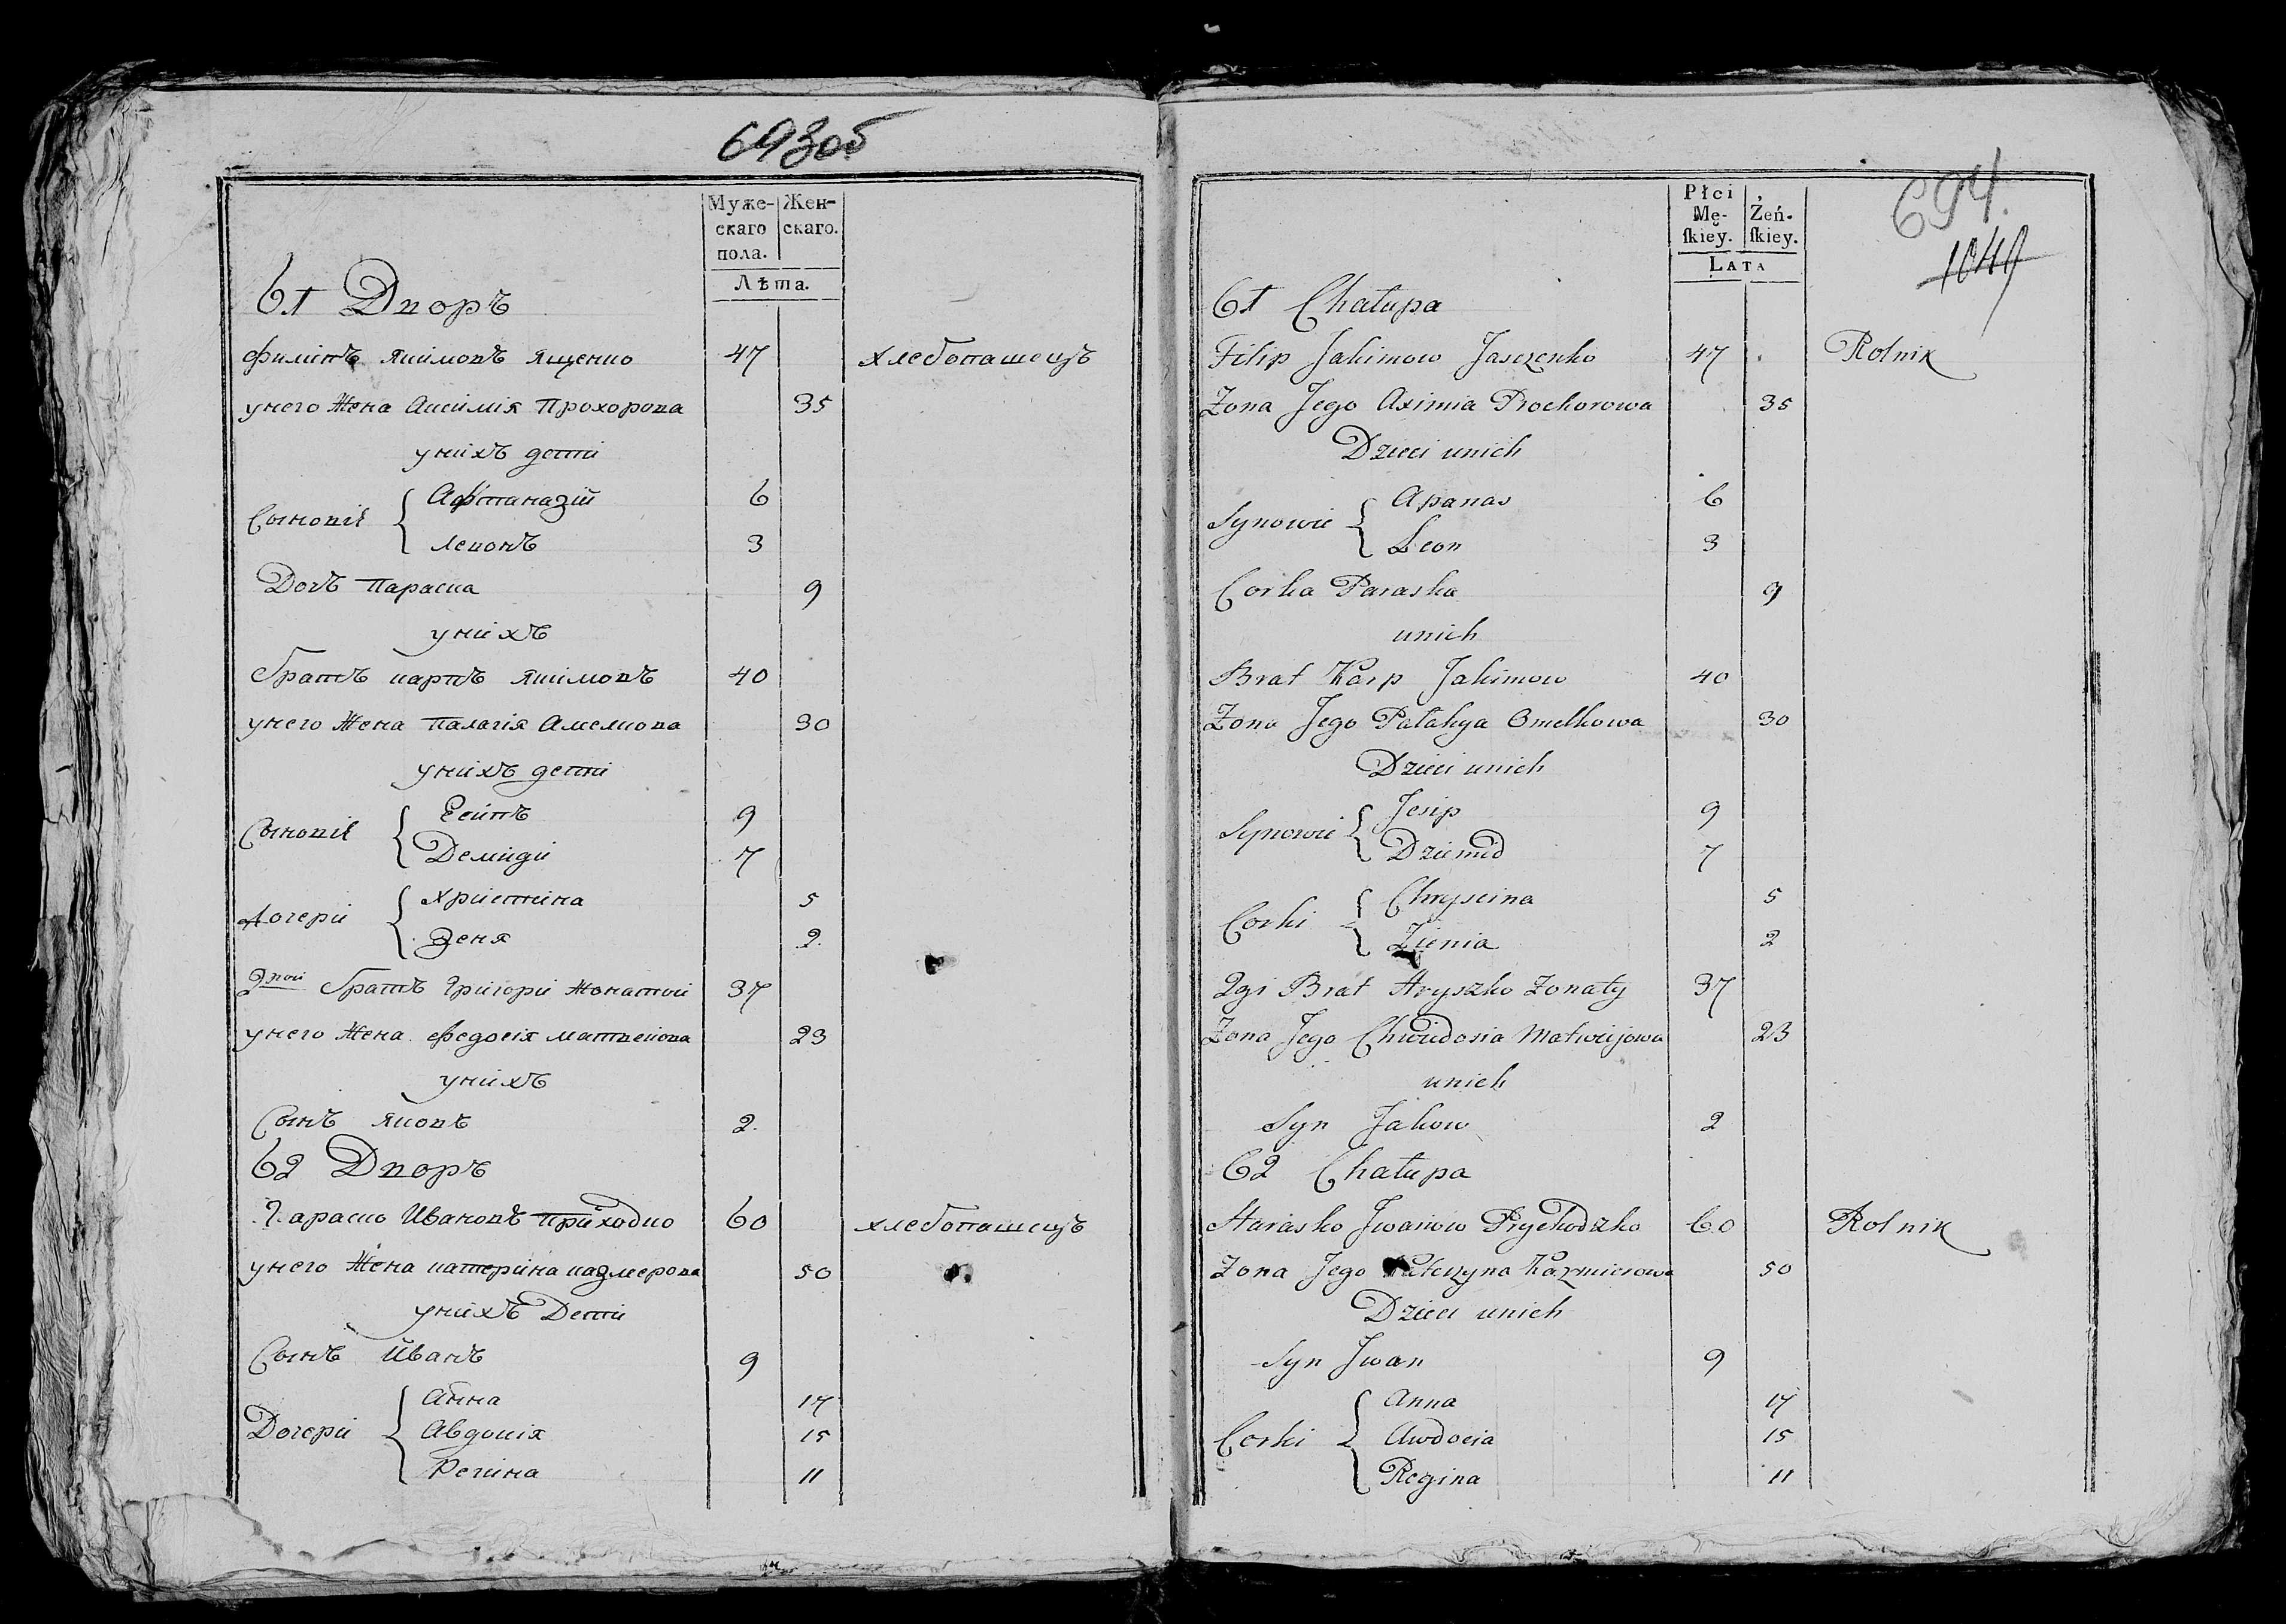 693об
Муже-
скаго
пола.
Жен-
скаго.
Лѣта.
61 Дворъ
Филипъ Якимовъ Ященко 47 хлебопашецъ
унего Жена Аксимія Прохорова 35
унихъ дети
Сыновıѣ { Афтаназій 6
Левонъ 3
Дочъ Параска 9
унихъ
братъ карпъ якимовъ 40
унего Жена палагія Амелкова 30
унихъ дети
Сыновıѣ { Есипъ 9
Демиди 7
дочери { Христина 5
Зеня 2.
2рои братъ Григори Жонатои 37
унего Жена федосія матвеиова 23
унихъ
Сынъ яковъ 2.
62 Дворъ
Гараско Ивановъ приходко 60 хлебопашецъ
унего Жена катерина казмерова 50
унихъ Дети
Сынъ Иванъ 9
Дочери { Анна 17
Авдокія 15
Регина 11
694.
1049
Płci
Mę-
ſkiey.
Żeń-
ſkiey.
LATA
61 Chałupa
Filip Jakimow Jaszczenko 47 Rolnik
Żona Jego Aximia Prochorowa 35
Dzieci unich
Synowie { Apanas 6
Leon 3
Corka Paraska 9
unich
Brat Karp Jakimow 40
Żona Jego Pałahya Omelkowa 30
Dzieci unich
Synowie { Jesip 9
Dziemid 7
Corki { Chryscina 5
Zienia 2
2gi Brat Hryszko Żonaty 37
Żona Jego Chwiedosia Matwiejowa 23
unich
Syn Jakow 2
62 Chałupa
Harasko Jwanow Prychodzko 60 Rolnik
Żona Jego Katerzyna Kazmierowa 50
Dzieci unich
Syn Jwan 9
Corki { Anna 17
Awdocia 15
Regina 11